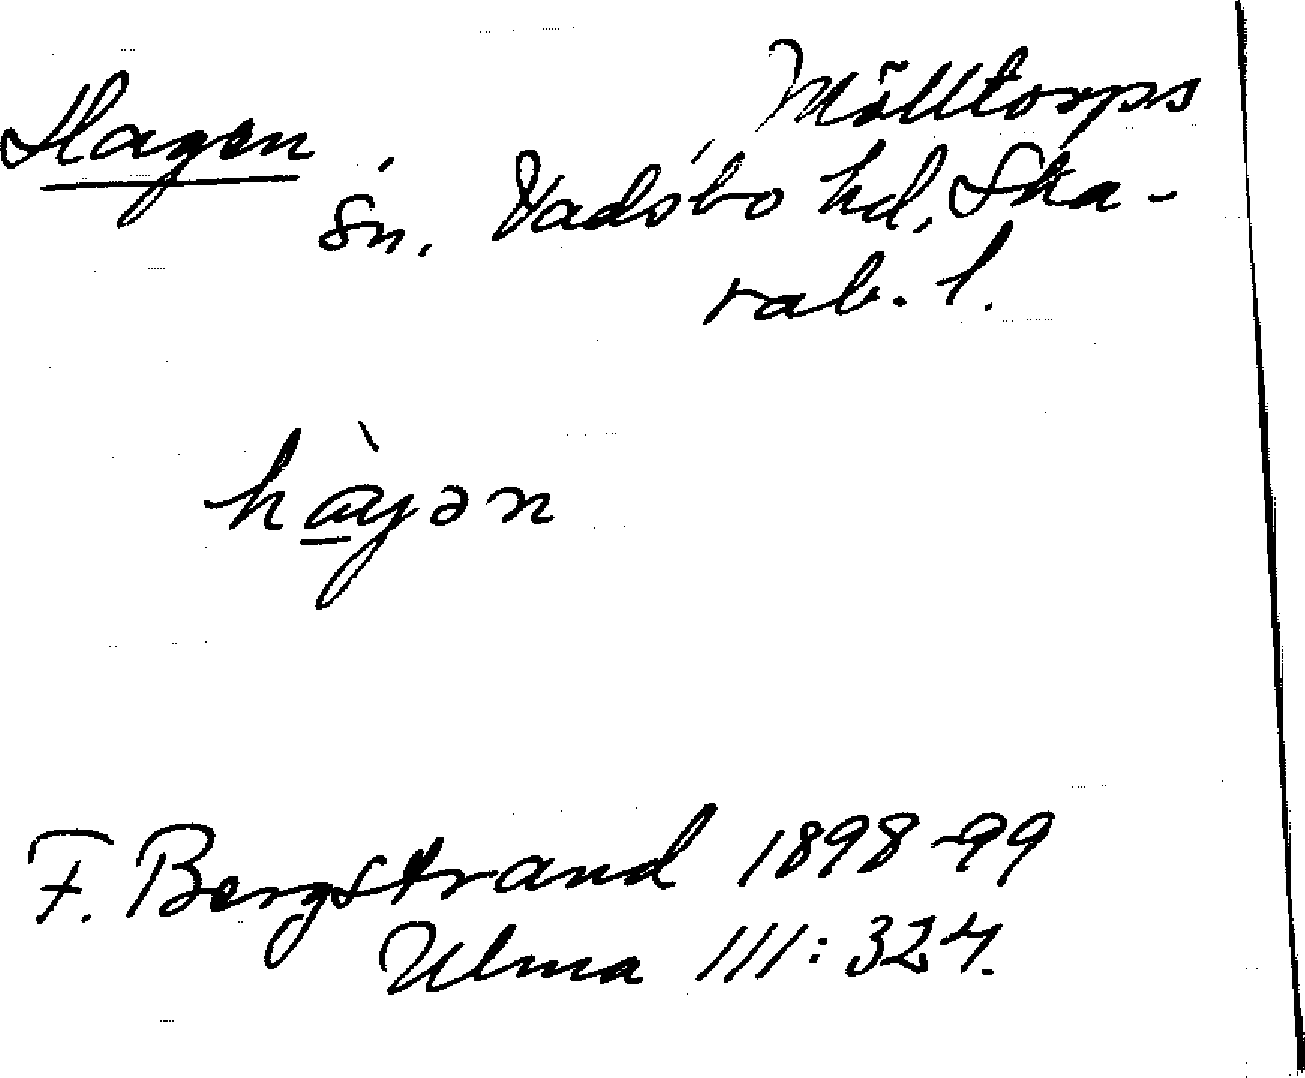 Hagen
Mölltorps
sn. Vadsbo hd, Ska-
rab. l.
hàgən
F. Bergstrand 1898-99
Ulma 111:324.